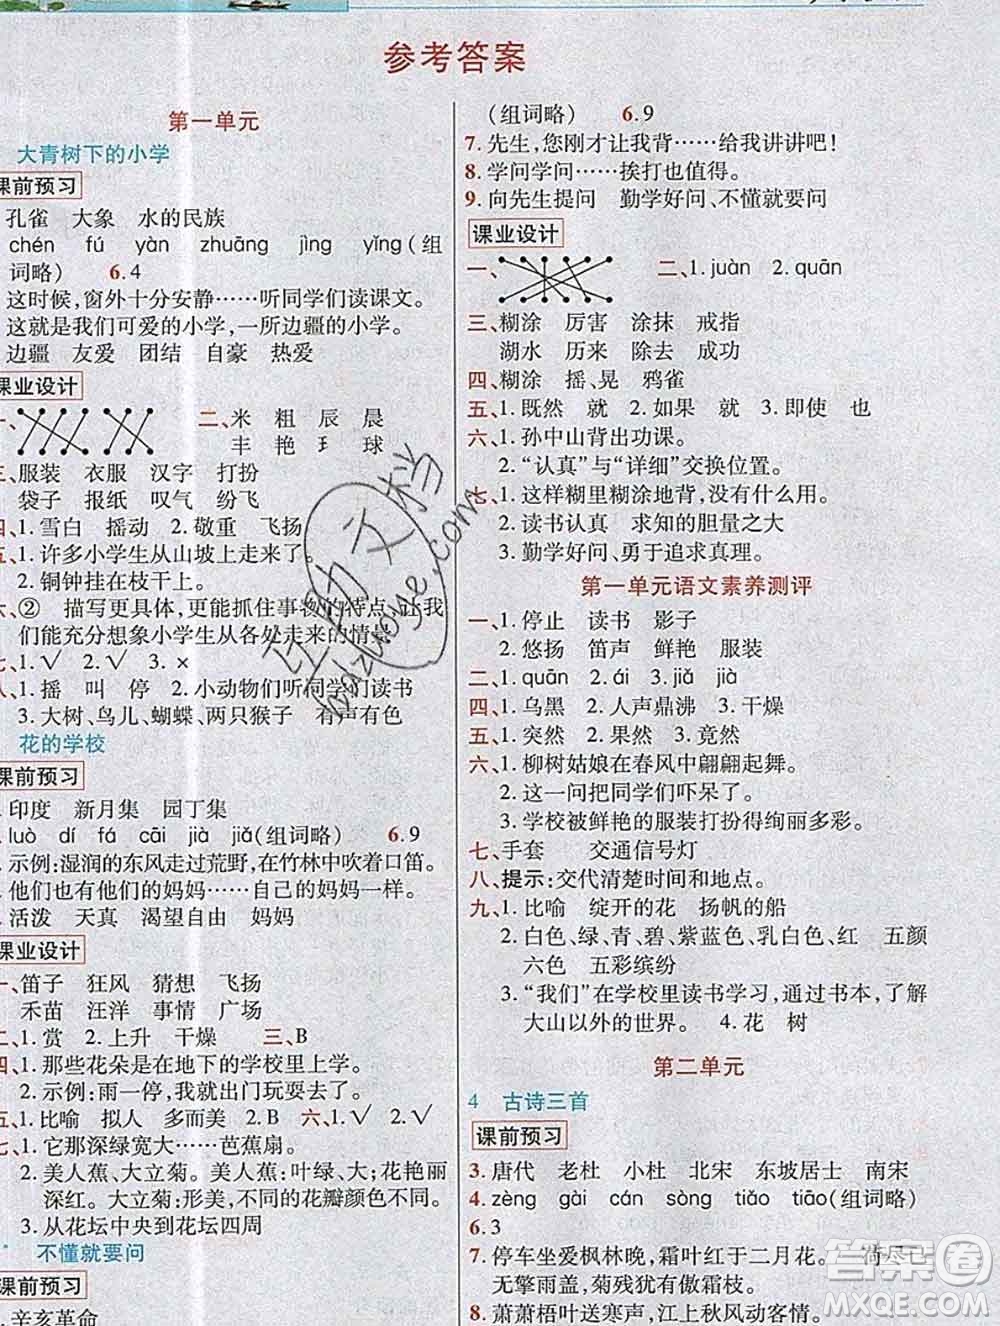 参考答案
第一单元
大青树下的小学
课前预习
孔雀 大象 水的民族
chén fú yàn zhuāng jìng yǐng(组
词略) 6.4
这时候,窗外十分安静……听同学们读课文。
这就是我们可爱的小学,一所边疆的小学。
边疆 友爱 团结 自豪 热爱
课业设计
一、 二、米 粗 辰 晨
丰 艳 王 球
三、服装 衣服 汉字 打扮
袋子 报纸 叹气 纷飞
四、1.雪白 摇动 2.敬重 飞扬
五、1.许多小学生从山坡上走来了。
2.铜钟挂在枝干上。
六、② 描写更具体,更能抓住事物的特点,让我
们能充分想象小学生从各处走来的情景
七、1.√ 2.√ 3.×
八、1.摇 叫 停 2.小动物们听同学们读书
3.大树、鸟儿、蝴蝶、两只猴子 有声有色
花的学校
课前预习
印度 新月集 园丁集
luò dí fá cāi jià jiǎ(组词略) 6.9
示例:湿润的东风走过荒野,在竹林中吹着口笛。
他们也有他们的妈妈……自己的妈妈一样。
活泼 天真 渴望自由 妈妈
课业设计
一、笛子 狂风 猜想 飞扬
禾苗 汪洋 事情 广场
二、1.赏 2.上升 干燥 三、B
四、1.那些花朵是在地下的学校里上学。
2.示例:雨一停,我就出门玩耍了。
五、1.比喻 拟人 多而美 2.B 六、1.√ 2.√
七、1.它那深绿宽大……芭蕉扇。
2.美人蕉、大立菊。美人蕉:叶绿、大;花艳丽
深红。大立菊:形美,不同的花瓣颜色不同。
3.从花坛中央到花坛四周
不懂就要问
课前预习
辛亥革命
(组词略) 6.9
7.先生,您刚才让我背……给我讲讲吧!
8.学问学问……挨打也值得。
9.向先生提问 勤学好问、不懂就要问
课业设计
一、 二、1.juàn 2.quān
三、糊涂 厉害 涂抹 戒指
湖水 历来 除去 成功
四、糊涂 摇、晃 鸦雀
五、1.既然 就 2.如果 就 3.即使 也
六、1.孙中山背出功课。
2.“认真”与“详细”交换位置。
七、1.这样糊里糊涂地背,没有什么用。
2.读书认真 求知的胆量之大
3.勤学好问、勇于追求真理。
第一单元语文素养测评
一、1.停止 读书 影子
2.悠扬 笛声 鲜艳 服装
二、1.quān 2.ái 3.jiǎ jià
四、1.乌黑 2.人声鼎沸 3.干燥
五、1.突然 2.果然 3.竟然
六、1.柳树姑娘在春风中翩翩起舞。
2.这一问把同学们吓呆了。
3.学校被鲜艳的服装打扮得绚丽多彩。
七、手套 交通信号灯
八、提示:交代清楚时间和地点。
九、1.比喻 绽开的花 扬帆的船
2.白色、绿、青、碧、紫蓝色、乳白色、红 五颜
六色 五彩缤纷
3.“我们”在学校里读书学习,通过书本,了解
大山以外的世界。 4.花 树
第二单元
4 古诗三首
课前预习
3.唐代 老杜 小杜 北宋 东坡居士 南宋
4.zèng gài cán sòng tiǎo tiāo(组词略)
6.3
7.停车坐爱枫林晚,霜叶红于二月花。 荷尽已
无擎雨盖,菊残犹有傲霜枝。
8.萧萧梧叶送寒声,江上秋风动客情。
答案圈
MXQE.COM